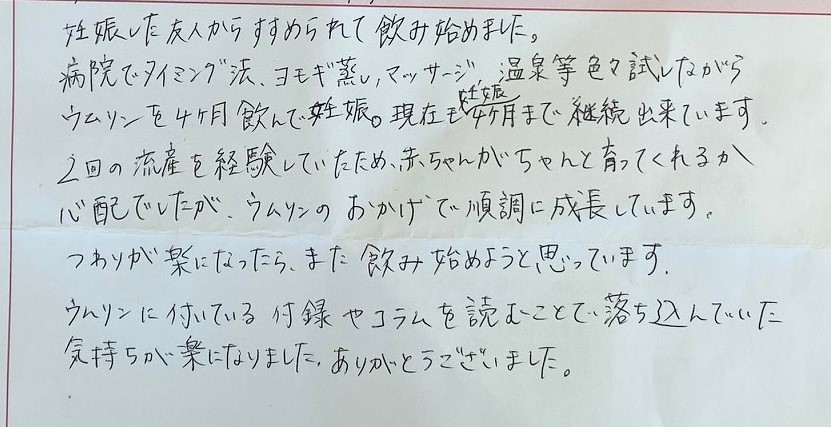 妊娠した友人からすすめられて飲み始めました。
病院でタイミング法、ヨモギ蒸し、マッサージ、温泉等色々試しながら
ウムリンを4ヶ月飲んで妊娠。現在も妊娠4ヶ月まで継続出来ています。
2回の流産を経験していたため、赤ちゃんがちゃんと育ってくれるか
心配でしたが、ウムリンのおかげで順調に成長しています。
つわりが楽になったら、また飲み始めようと思っています。
ウムリンに付いている付録やコラムを読むことで落ち込んでいた
気持ちが楽になりました。ありがとうございました。